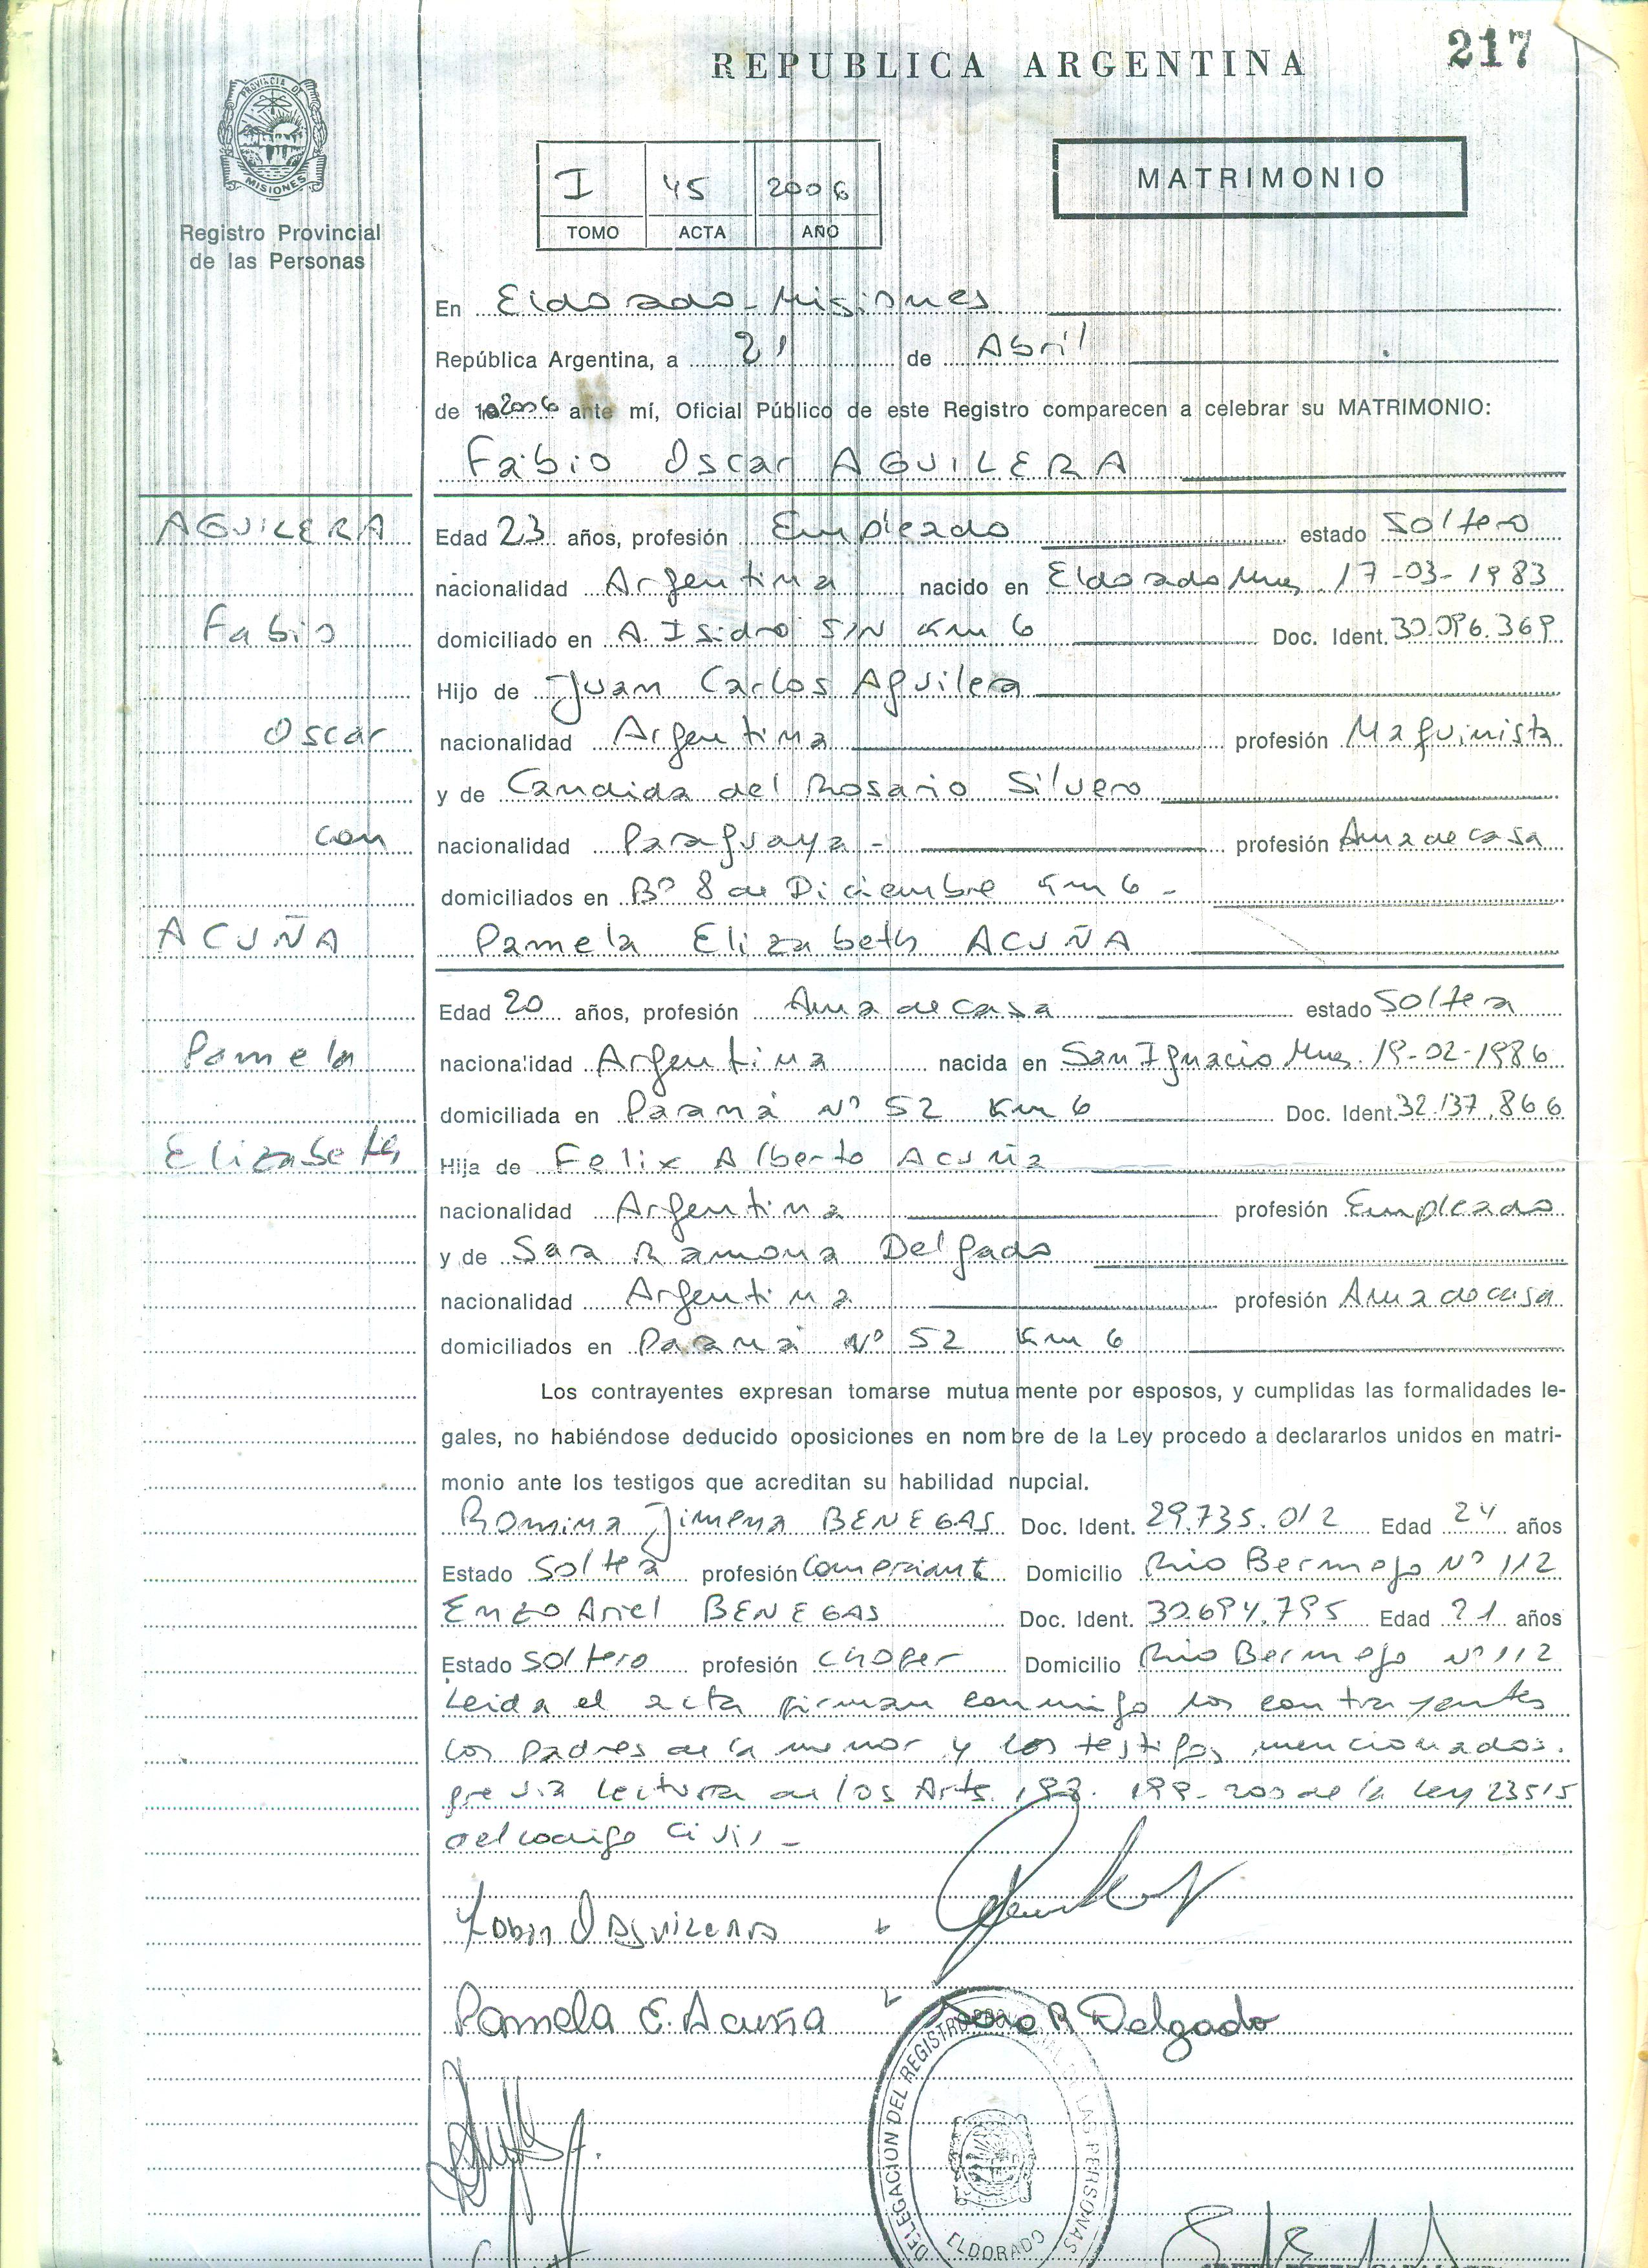 217
REPUBLICA ARGENTINA
PROVINCIA DE
MISIONES
Registro Provincial
de las Personas
I 45 2006
TOMO ACTA AÑO
MATRIMONIO
En Eldorado - Misiones
República Argentina, a 21 de Abril
de 2006 ante mí, Oficial Público de este Registro comparecen a celebrar su MATRIMONIO:
Fabio Oscar AGUILERA
AGUILERA
Edad 23 años, profesión Empleado estado Soltero
nacionalidad Argentina nacido en Eldorado Mnes. 17-03-1983
Fabio
domiciliado en A. Isidro S/N Km 6 Doc. Ident. 30.096.369
Hijo de Juan Carlos Aguilera
Oscar
nacionalidad Argentina profesión Maquinista
y de Candida del Rosario Silvero
con
nacionalidad Paraguaya - profesión Ama de casa
domiciliados en Bº 8 de Diciembre Km 6 -
ACUÑA
Pamela Elizabeth ACUÑA
Edad 20 años, profesión Ama de casa estado Soltera
Pamela
nacionalidad Argentina nacida en San Ignacio Mnes. 19-02-1986
domiciliada en Paraná Nº 52 Km 6 Doc. Ident. 32.137.866
Elizabeth
Hija de Felix Alberto Acuña
nacionalidad Argentina profesión Empleado
y de Sara Ramona Delgado
nacionalidad Argentina profesión Ama de casa
domiciliados en Paraná Nº 52 Km 6
Los contrayentes expresan tomarse mutuamente por esposos, y cumplidas las formalidades le-
gales, no habiéndose deducido oposiciones en nombre de la Ley procedo a declararlos unidos en matri-
monio ante los testigos que acreditan su habilidad nupcial.
Romina Jimena BENEGAS Doc. Ident. 29.735.012 Edad 24 años
Estado Soltera profesión Comerciante Domicilio Rio Bermejo Nº 112
Enzo Ariel BENEGAS Doc. Ident. 30.694.795 Edad 21 años
Estado Soltero profesión Chofer Domicilio Rio Bermejo Nº 112
Leida el acta firman conmigo los contrayentes
los padres de la menor y los testigos mencionados.
previa lectura de los Arts. 198. 199-200 de la Ley 23515
del codigo Civil -
Fabio O Aguilera
Pamela E. Acuña
Sara R Delgado
DELEGACION DEL REGISTRO PROVINCIAL DE LAS PERSONAS
ELDORADO